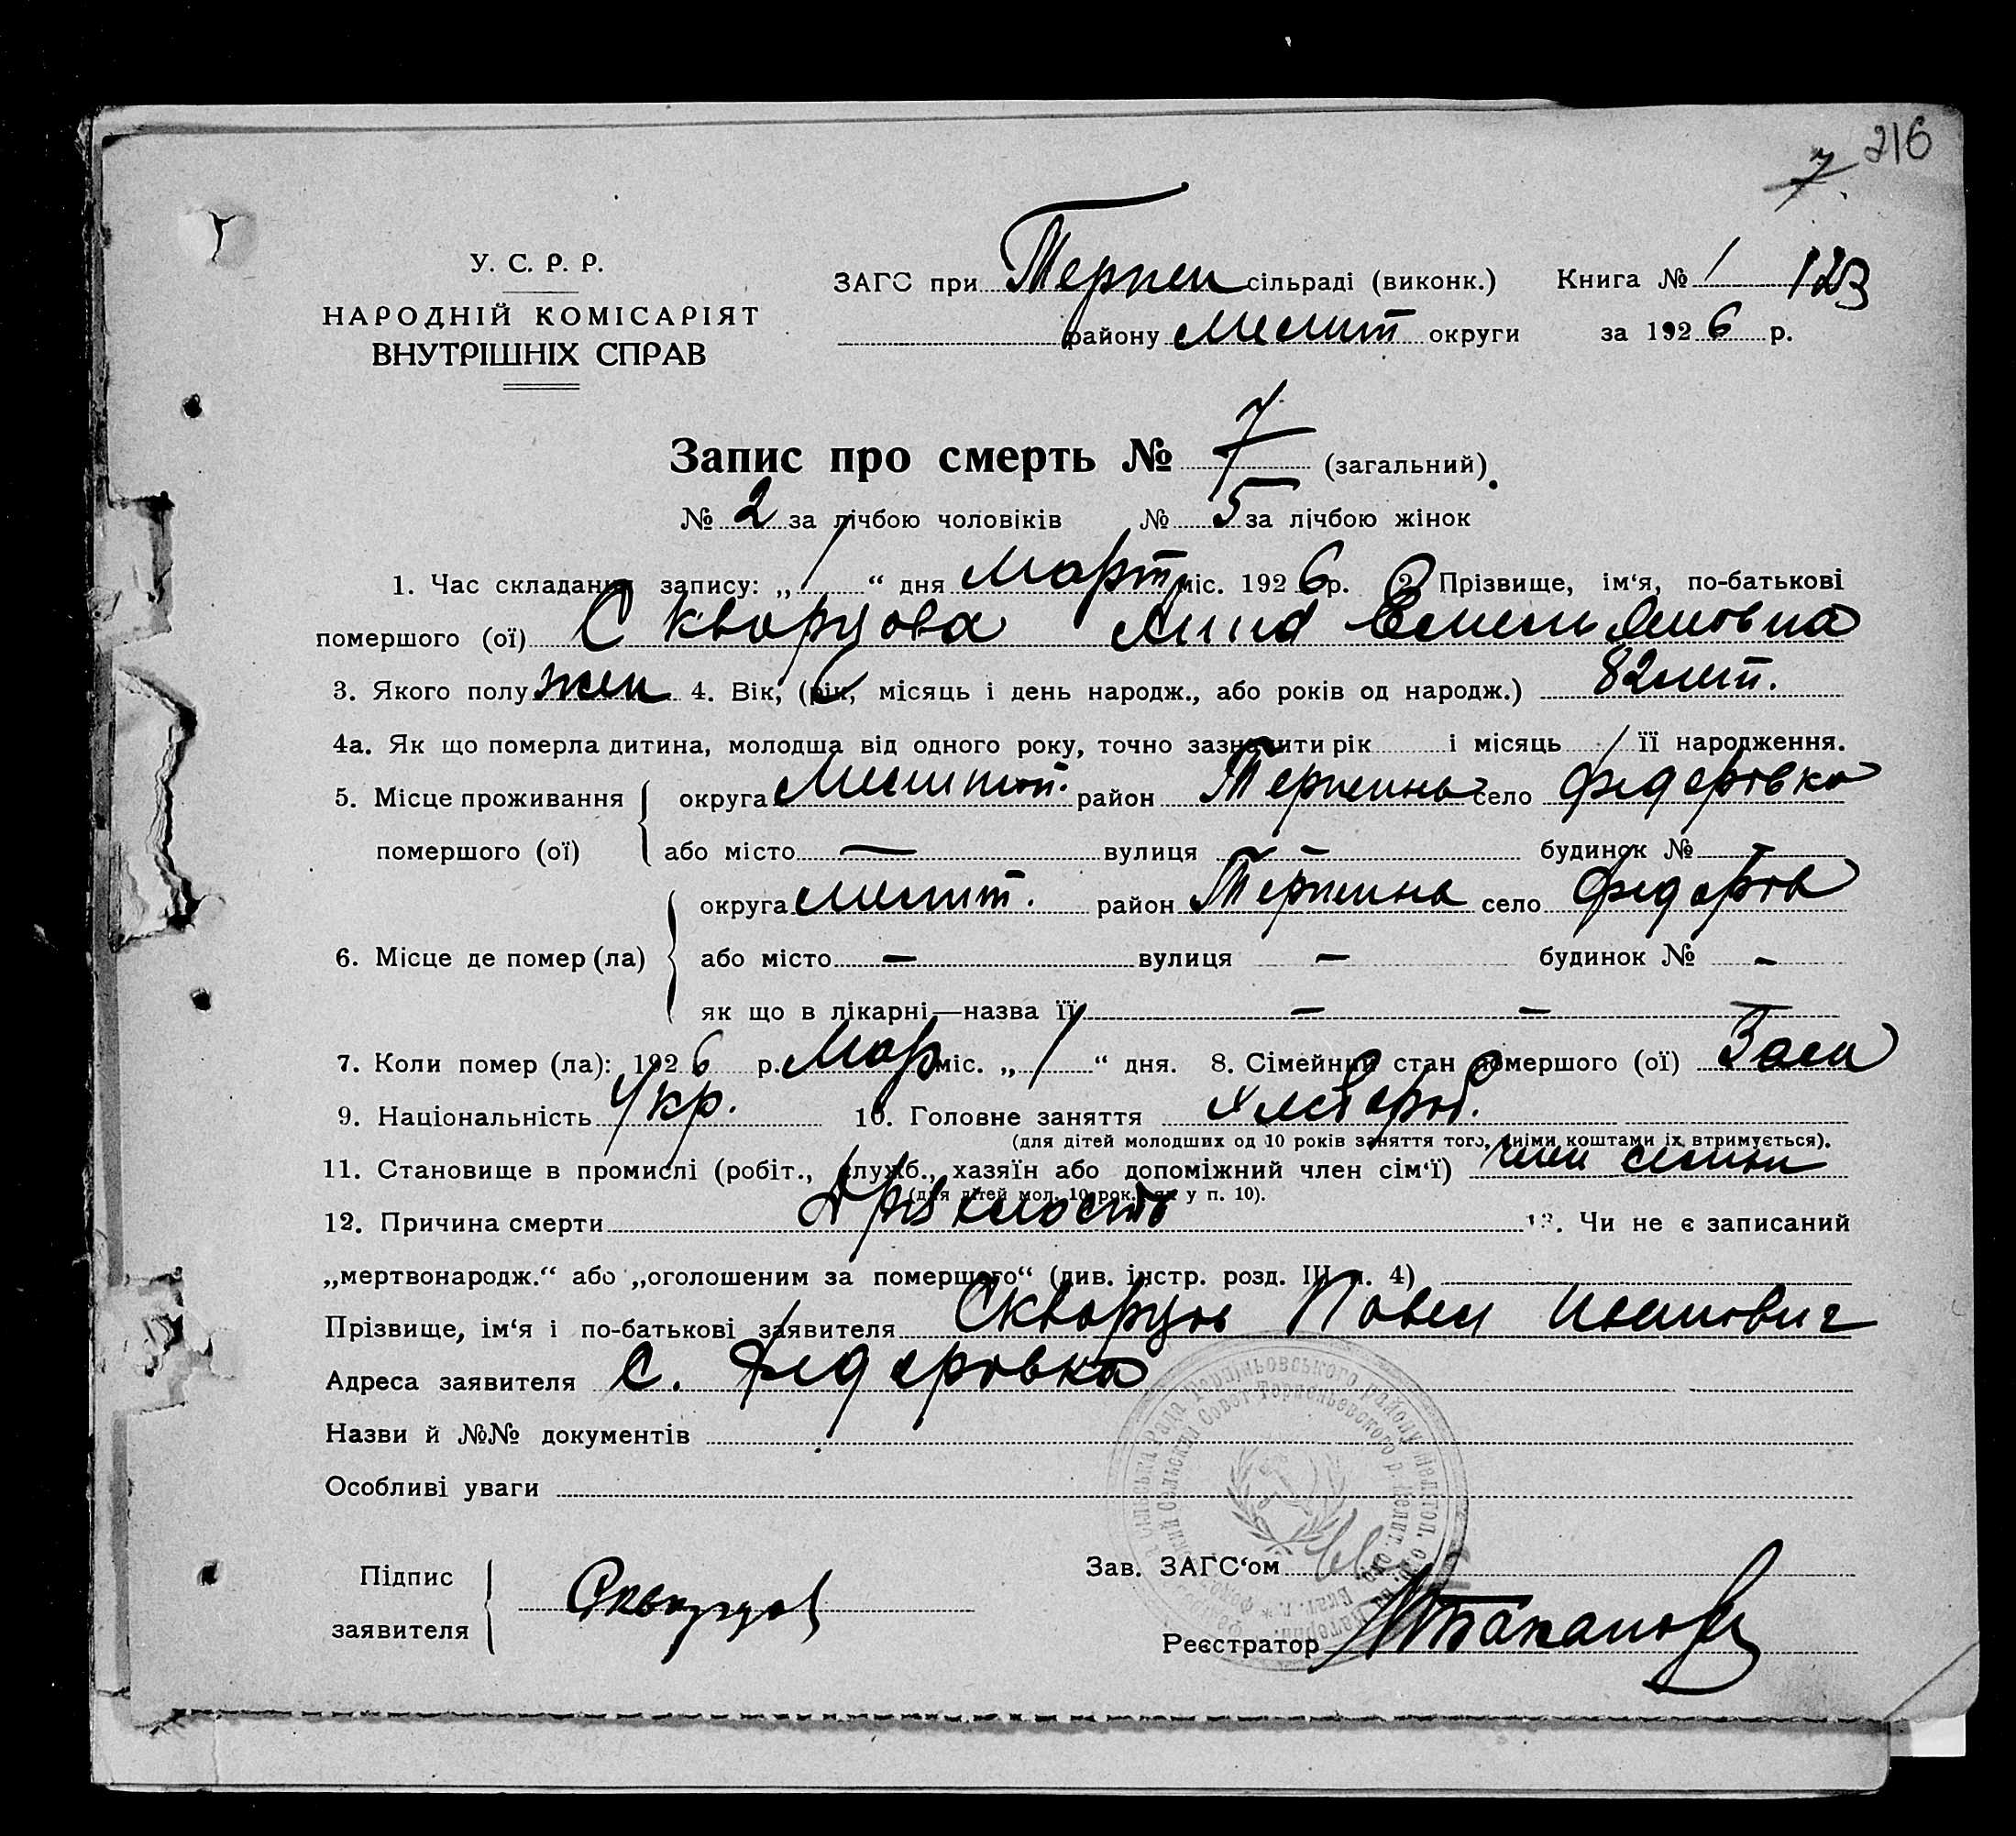 216
7
У. С. Р. Р.
НАРОДНІЙ КОМІСАРІЯТ
ВНУТРІШНІХ СПРАВ
ЗАГС при Терпен сільраді (виконк.) Книга № 1 123
району Мелит округи за 1926 р.
Запис про смерть № 7 (загальний)
№ 2 за лічбою чоловіків № 5 за лічбою жінок
1. Час складання запису: „1“ дня Март міс. 1926 р. 2. Прізвище, ім‘я, по-батькові
помершого (ої) Скворцова Анна Емельяновна
3. Якого полу жен 4. Вік, (рік, місяць і день народж., або років од народж.) 82 лет.
4а. Як що померла дитина, молодша від одного року, точно зазначити рік і місяць її народження.
5. Місце проживання округа Мелитоп. район Терпение село Федоровка
помершого (ої) або місто — вулиця — будинок № —
округа Мелит. район Терпение село Федоров
6. Місце де помер (ла) або місто — вулиця — будинок № —
як що в лікарні—назва її — —
7. Коли помер (ла): 1926 р. Мар міс. „1“ дня. 8. Сімейний стан помершого (ої)
9. Національність Укр. 10. Головне заняття Хлебороб.
(для дітей молодших од 10 років заняття того, чиїми коштами їх втримується).
11. Становище в промислі (робіт., служб., хазяїн або допоміжний член сім‘ї) член семьи
(для дітей мол. 10 рок. як у п. 10).
12. Причина смерти Дряхлость 13. Чи не є записаний
„мертвонародж.“ або „оголошеним за помершого“ (див. інстр. розд. III п. 4)
Прізвище, ім‘я і по-батькові заявителя Скворцов Павел Иванович
Адреса заявителя с. Федоровка
Назви й №№ документів
Особливі уваги
Підпис
заявителя Скворцов
Зав. ЗАГС‘ом
Реєстратор